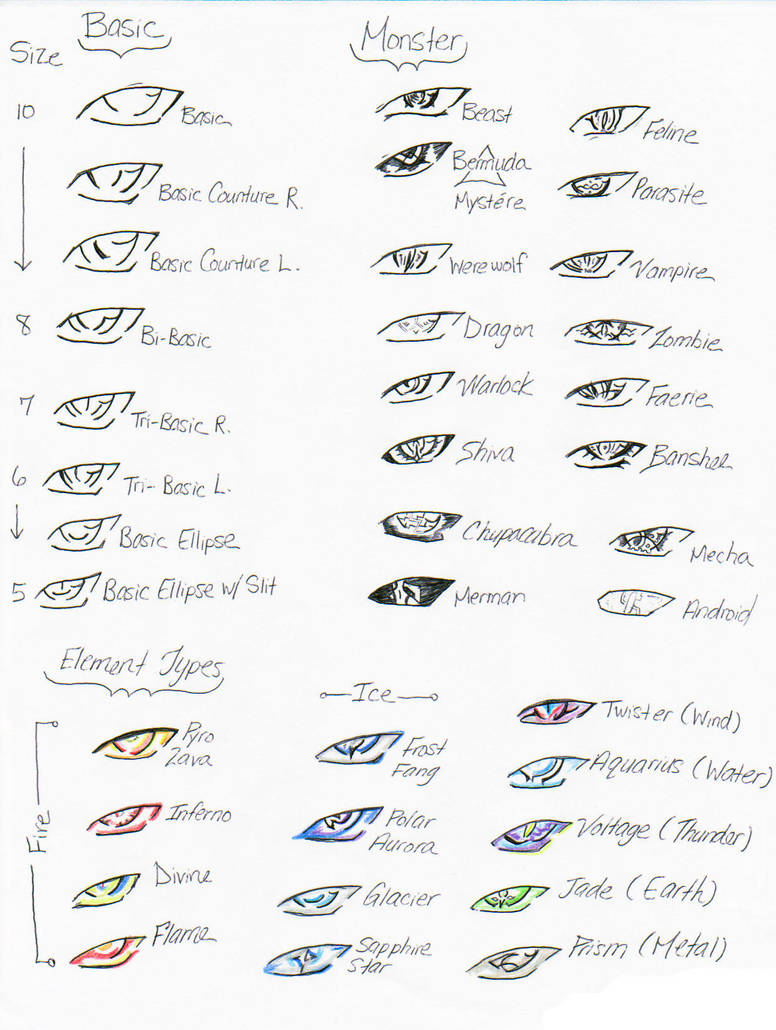 Size
Basic
10
Basic
Basic Counture R.
Basic Counture L.
8
Bi-Basic
7
Tri-Basic R.
6
Tri-Basic L.
Basic Ellipse
5
Basic Ellipse w/ Slit
Monster
Beast
Feline
Bermuda
Mystére
Parasite
Werewolf
Vampire
Dragon
Zombie
Warlock
Faerie
Shiva
Banshee
Chupacabra
Mecha
Merman
Android
Element Types
Fire
Pyro
Lava
Inferno
Divine
Flame
Ice
Frost
Fang
Polar
Aurora
Glacier
Sapphire
Star
Twister (Wind)
Aquarius (Water)
Voltage (Thunder)
Jade (Earth)
Prism (Metal)